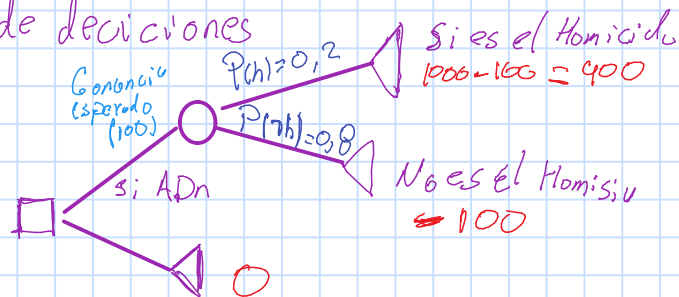 de deciciones
Si es el Homicida
1000-100 = 900
P(h)=0,2
Ganancia
esperado
(100)
P(¬h)=0,8
si ADn
No es el Homisiu
-100
0